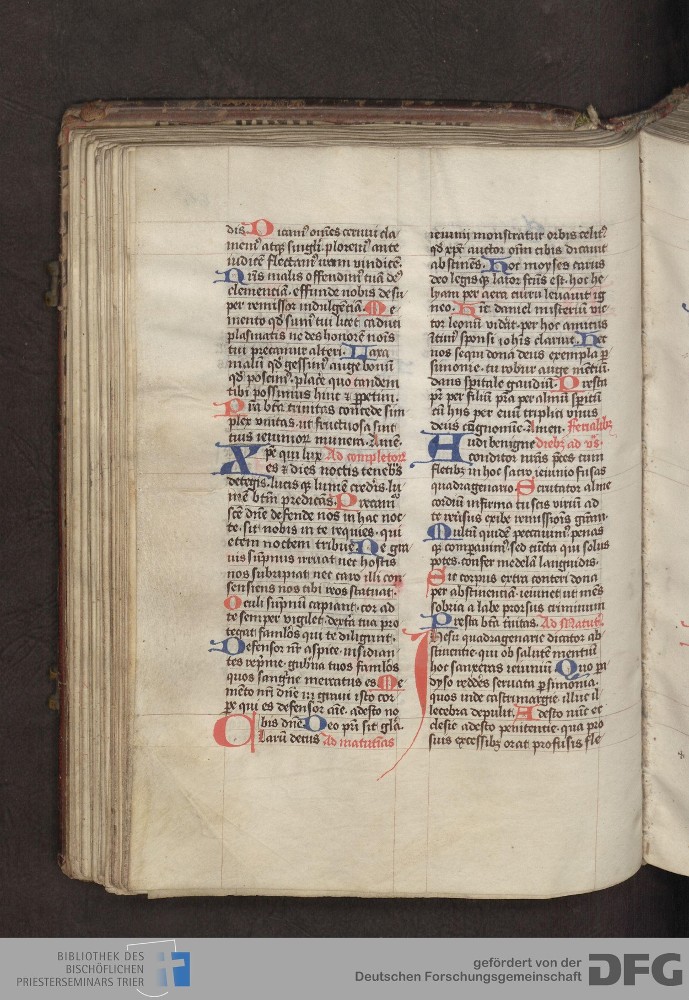 dis. Dicam⁹ om̄es cernui cla
mem⁹ atq; singli. plorem⁹ ante
iudicē flectam⁹ iram vindicē.
Nr̄is malis offendim⁹ tuā de⁹
clemenciā. effunde nobis desu
per remissor indulgēciā. Me
mento qd̄ sum⁹ tui licet caduci
plasmatis ne des honorē nois
tui precamur alteri. Laxa
malū qd̄ gessim⁹ auge bonū
qd̄ poscim⁹. placē quo tandem
tibi possimus hinc ⁊ ꝑpetim.
Pr̄a btā trinitas concede sim
plex vnitas. ut fructuosa sint
tuis ieiunior munera. Amē.
Xp̄e qui lux Ad completor
es ⁊ dies noctis tenebr̄s
detegis. lucis qꝫ lumē crederis. lu
mē btm̄ predicās. Precam⁹
sc̄e dn̄e defende nos in hac noc
te. sit nobis in te requies. qui
etem noctem tribue. Ne gra
uis sōpnus irruat nec hostis
nos subripiat. nec caro illi con
senciens nos tibi reos statuat.
Oculi sōpnū capiant. cor ad
te semper vigilet. dextera tua pro
tegat famlōs qui te diligunt.
Defensor nr̄ aspice. insidian
tes reprime. gubna tuos famlōs
quos sangne mercatus es. Me
mēto nr̄i dn̄e in graui isto cor
ꝑe qui es defensor aīe. adesto no
bis dn̄e. Deo pr̄i sit glā.
Clarū decus Ad matutinas
ieiunij monstratur orbis celit⁹
qd̄ xp̄c auctor om̄ cibis dicauit
abstinēs. Hoc moyses carus
deo legisqꝫ lator fcūs est. hoc he
lyam per aera curru leuauit ig
neo. Hic daniel misteriū vic
tor leonū vidit. per hoc amicus
ītim⁹ sponsi ioh̄is claruit. Hec
nos sequi dona deus exempla ꝑ
simonie. tu robur auge mētiū
dans spūale gaudiū. Presta
pr̄ per filiū. pr̄a per almū spiritū
cū hijs per euū triplici vnus
deus cognomīe. Amen. Ferialibꝫ
Audi benigne diebꝫ ad vs̄.
conditor nr̄as p̄ces cum
fletibꝫ in hoc sacro ieiunio fusas
quadragenario. Scrutator alme
cordiū infirma tu scis viriū ad
te reūsus exibe remissiois grām.
Multū quidē peccauim⁹. penas
qꝫ comparauim⁹. sed cūcta qui solus
potes. confer medelā languidis.
Sic corpus extra conteri dona
per abstinentiā. ieiunet ut mēs
sobria a labe prorsus criminum
Presta btā tinitas. Ad Matut.
Ihesu quadragenarie dicator ab
stinentie. qui ob salutē mentiū
hoc sanxeras ieiuniū. Quo pa
dyso reddēs seruata ꝑsimonia.
quos inde castrimargie. illuc il
lecebra depulit. Adesto nūc ec
clesie adesto penitentie. qua pro
suis excessibꝫ orat profusis fle
BIBLIOTHEK DES
BISCHÖFLICHEN
PRIESTERSEMINARS TRIER
gefördert von der
Deutschen Forschungsgemeinschaft
DFG